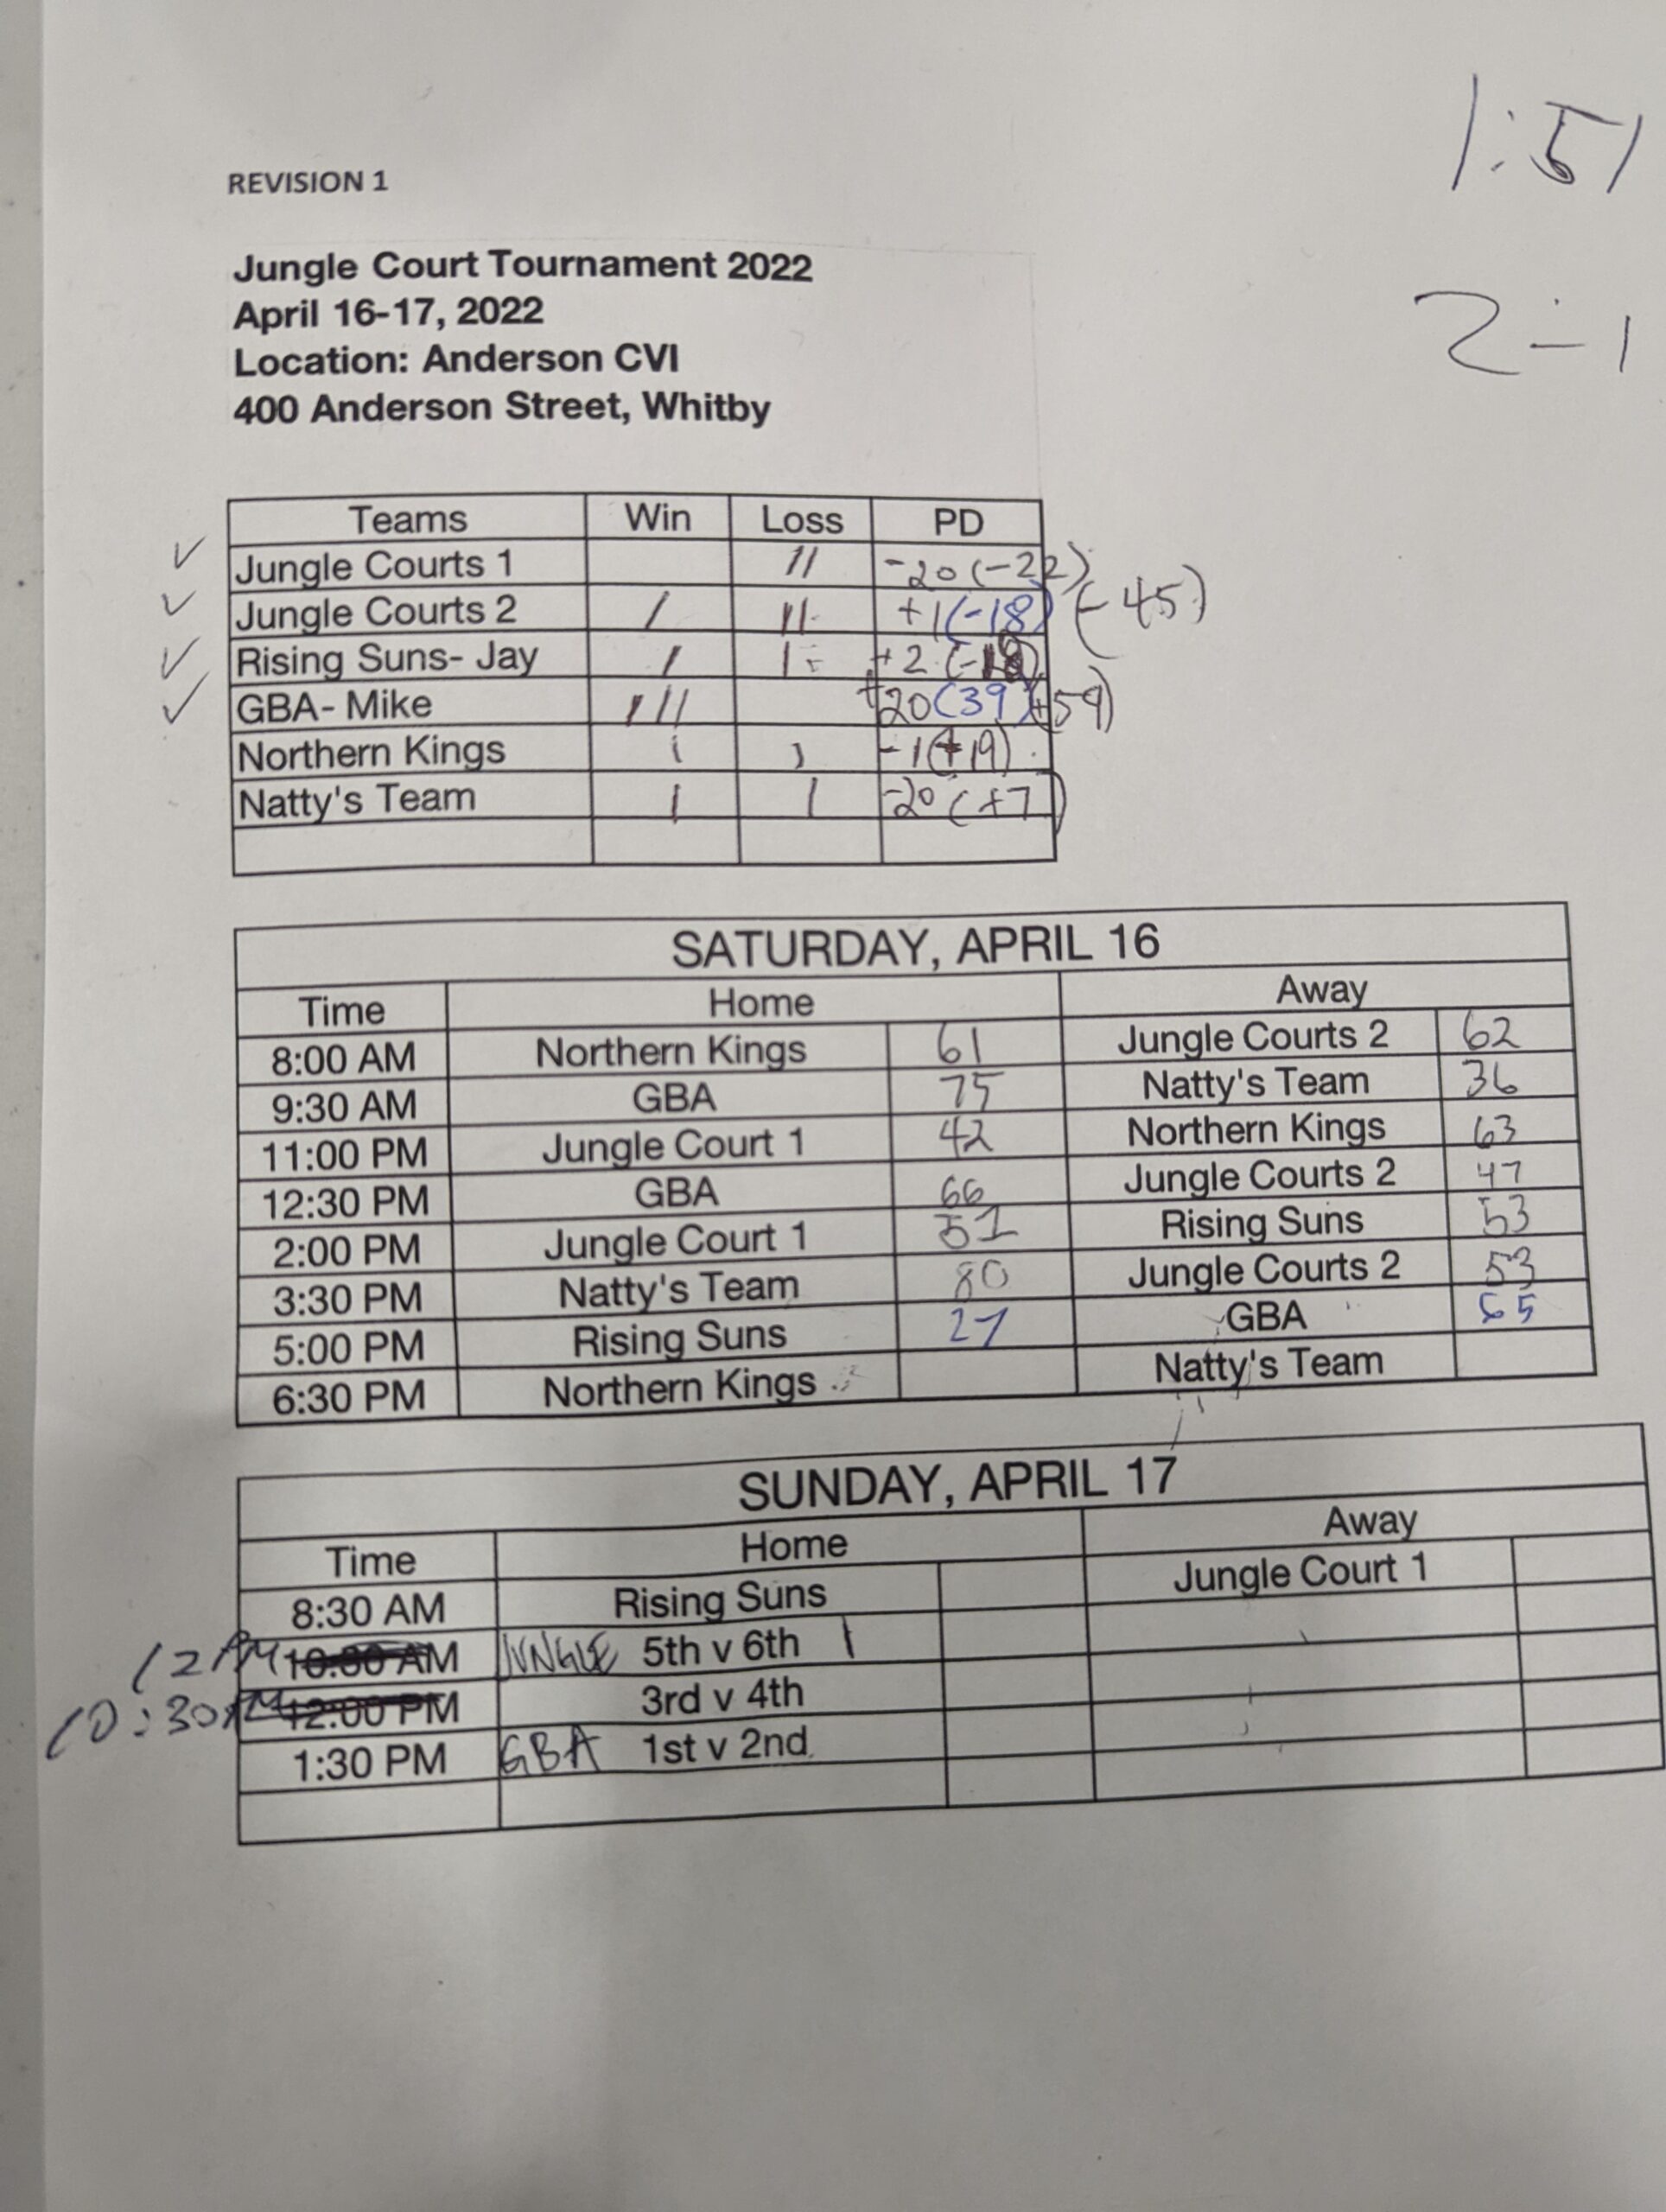 1:51
REVISION 1
Jungle Court Tournament 2022
2-1
April 16-17, 2022
Location: Anderson CVI
400 Anderson Street, Whitby
Teams Win Loss PD
✓ Jungle Courts 1 // -20 (-22)
✓ Jungle Courts 2 / // +1 (-18) (-45)
✓ Rising Suns- Jay / 1 +2
✓ GBA- Mike /// +20 (39) (+59)
Northern Kings 1 1 -1 (+19)
Natty's Team 1 1 -20 (+7)
SATURDAY, APRIL 16
Time Home Away
8:00 AM Northern Kings 61 Jungle Courts 2 62
9:30 AM GBA 75 Natty's Team 36
11:00 PM Jungle Court 1 42 Northern Kings 63
12:30 PM GBA 66 Jungle Courts 2 47
2:00 PM Jungle Court 1 51 Rising Suns 53
3:30 PM Natty's Team 80 Jungle Courts 2 53
5:00 PM Rising Suns 27 GBA 65
6:30 PM Northern Kings Natty's Team
SUNDAY, APRIL 17
Time Home Away
8:30 AM Rising Suns Jungle Court 1
12PM 10:30 AM JUNGLE 5th v 6th 1
10:30AM 12:00 PM 3rd v 4th
1:30 PM GBA 1st v 2nd